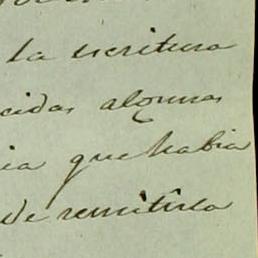 la escritura
cidas algunas
ia que habia
de remitirla